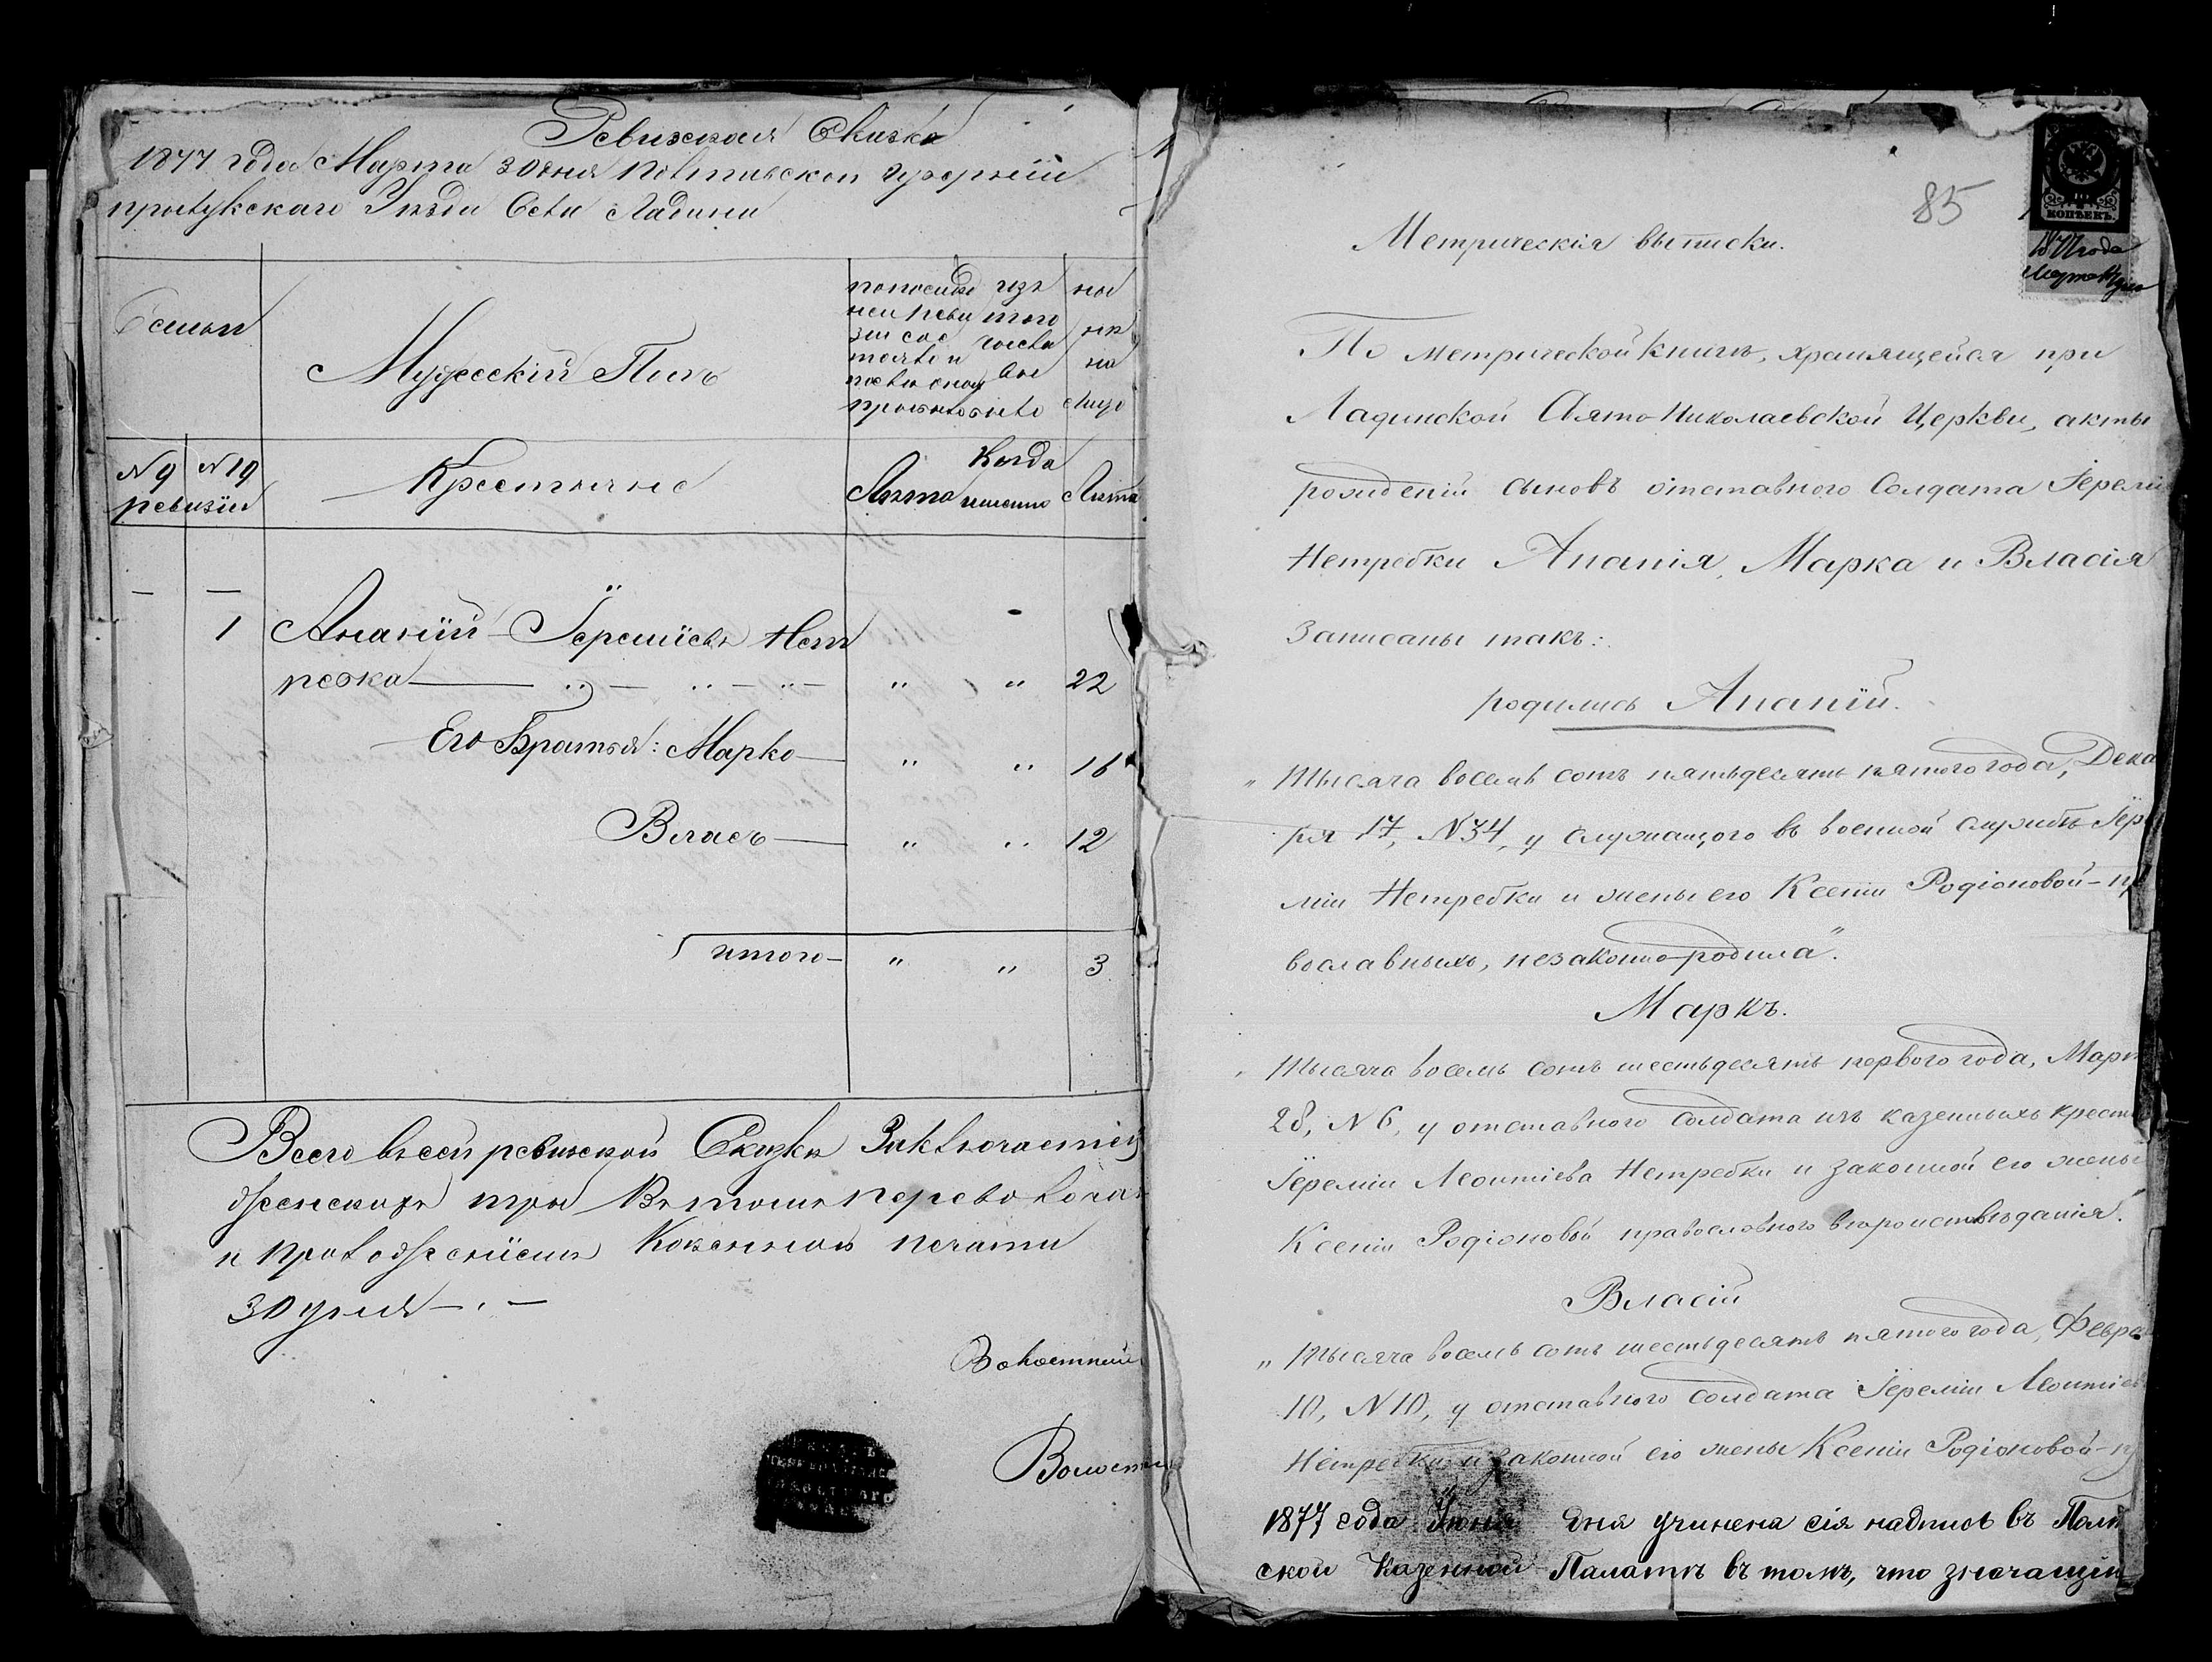 Ревизская Сказка
1877 года Марта 30 дня Полтавской Губерніи
прилукскаго Уѣзда Села Ладина
Семьи
Мужескій Полъ
по послѣд
ней реви
зіи сос
тояло и
после оной
прибыло
изъ
того
числа
вы
было
ны
нѣ
на
лицо
№ 9 № 10
ревизіи
Крестьяне
Лѣта
Когда
именно
Лѣта
— —
1 Ананій Іереміевъ Нет
ребка — " " 22
Его Братья: Марко — " " 16
Власъ — " " 12
итого — " " 3
Всего въ сей ревизской Сказки Заключается
и приложеніемъ Казенной печати
30 дня —.—
Волостный
Волостн
85
КОПѢЕКЪ
1877 года
Марта
Метрическія выписки.
По метрической книгѣ, хранящейся при
Ладинской Свято-Николаевской Церкви, акты
рожденій сыновъ отставного Солдата Іереміи
Нетребки Ананія, Марка и Власія
Записаны такъ:
родились Ананій.
„Тысяча восемь сотъ пятьдесятъ пятого года, Дека
ря 17, №34, у служащого въ военной службѣ Іере
міи Нетребки и жены его Ксеніи Родіоновой-пра
вославныхъ, незаконно-родила".
Маркъ.
„Тысяча восемь сотъ шестьдесятъ первого года, Март
28, №6, у отставного солдата изъ казенныхъ крестья
Іереміи Леонтіева Нетребки и законной его жены
Ксеніи Родіоновой православного вѣроисповѣданія.
Власій
„Тысяча восемь сотъ шестьдесятъ пятого года, Февра
10, №10, у отставного солдата Іереміи Леонтіев
Нетребки и законной его жены Ксеніи Родіоновой-пр
1877 года Іюня дня учинена сія надпись въ Полт
ской Казенной Палатѣ въ томъ, что значащіи